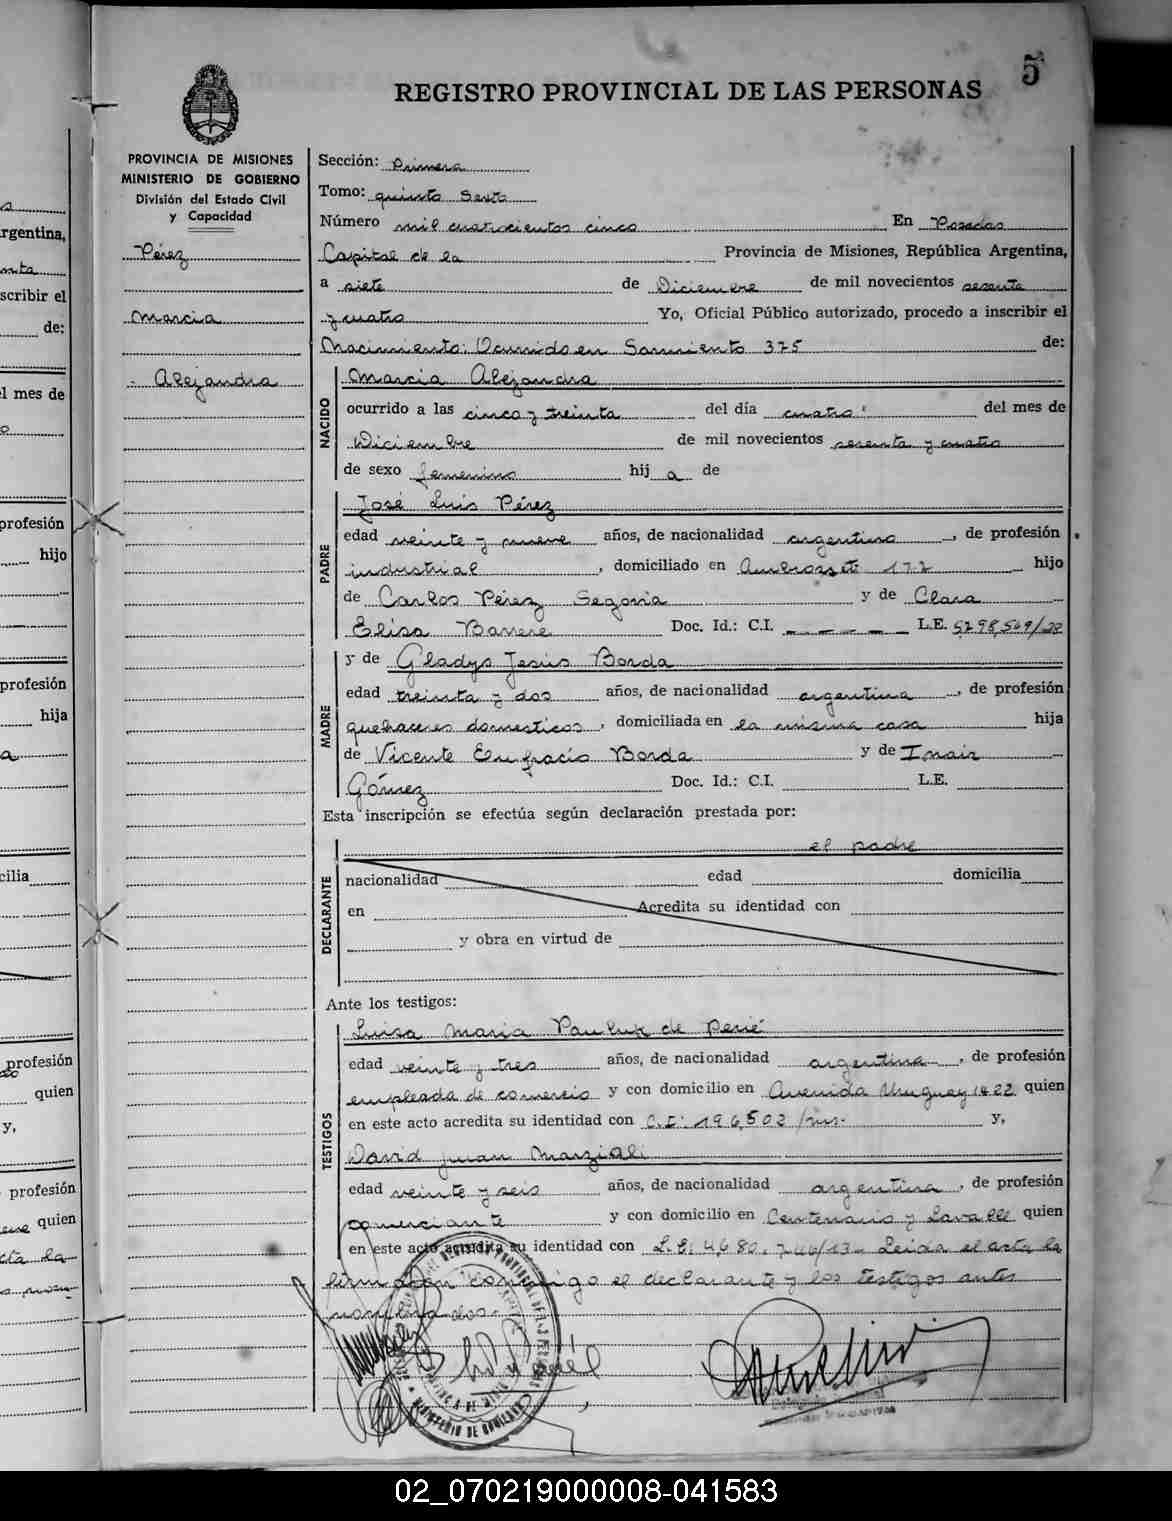 5
REGISTRO PROVINCIAL DE LAS PERSONAS
PROVINCIA DE MISIONES
MINISTERIO DE GOBIERNO
División del Estado Civil
y Capacidad
Pérez
Marcia
Alejandra
Sección: Primera
Tomo: quinto Sexto
Número mil cuatrocientos cinco En Posadas
Capital de la Provincia de Misiones, República Argentina,
a siete de Diciembre de mil novecientos sesenta
y cuatro Yo, Oficial Público autorizado, procedo a inscribir el
Nacimiento: Ocurrido en Sarmiento 375 de:
NACIDO
Marcia Alejandra
ocurrido a las cinco y treinta del día cuatro del mes de
Diciembre de mil novecientos sesenta y cuatro
de sexo femenino hij a de
PADRE
José Luis Pérez
edad veinte y nueve años, de nacionalidad argentino, de profesión
industrial, domiciliado en Ambrosetti 172 hijo
de Carlos Pérez Segovia y de Clara
Elisa Barrere Doc. Id.: C.I. - - - - L.E.
MADRE
y de Gladys Jesús Borda
edad treinta y dos años, de nacionalidad argentina, de profesión
quehaceres domesticos, domiciliada en la misma casa hija
de Vicente Eufracio Borda y de Inair
Gómez Doc. Id.: C.I. L.E.
Esta inscripción se efectúa según declaración prestada por:
el padre
DECLARANTE
nacionalidad edad domicilia
en Acredita su identidad con
y obra en virtud de
Ante los testigos:
TESTIGOS
Luisa Maria Pauluk de Perié
edad veinte y tres años, de nacionalidad argentina, de profesión
empleada de comercio y con domicilio en Avenida Uruguay 1422 quien
en este acto acredita su identidad con C.I: 196,502 y,
David Juan Marziali
edad veinte y seis años, de nacionalidad argentina, de profesión
comerciante y con domicilio en Centenario y Lavalle quien
en este acto acredita su identidad con L.E: Leida el acta la
firmaron conmigo el declarante y los testigos antes
nombrados.
rgentina,
scribir el
de:
el mes de
profesión
hijo
profesión
hija
cilia
profesión
quien
y,
profesión
quien
02_070219000008-041583